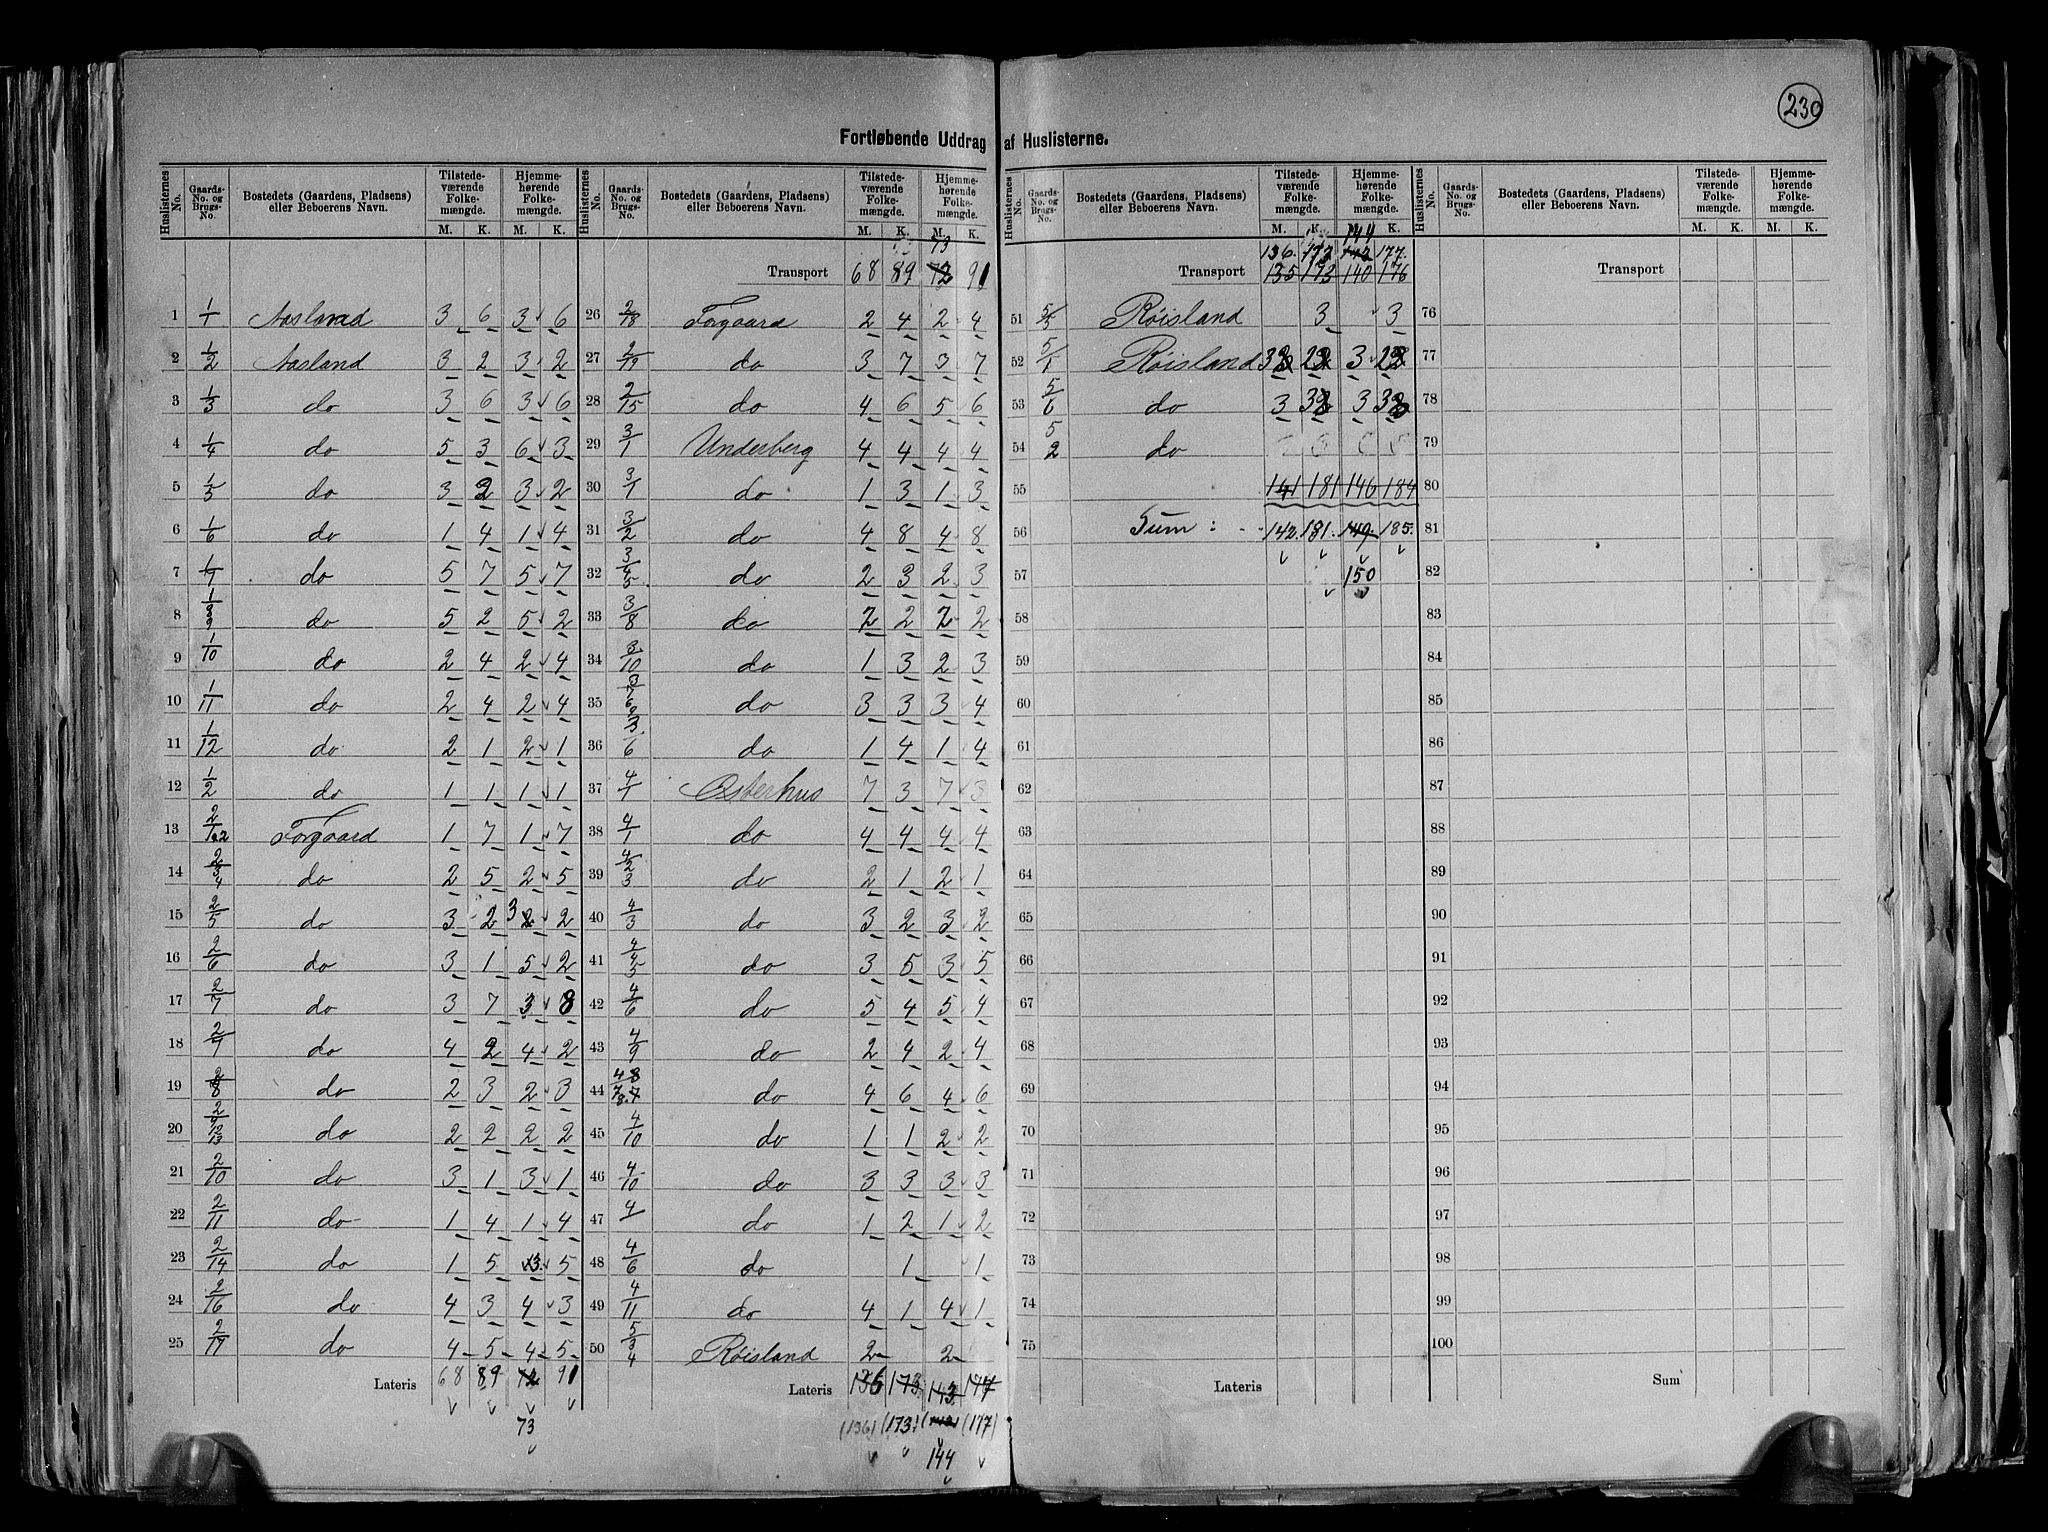 230
Fortløbende Uddrag af Huslisterne.
Huslisternes No. Gaards-No. og Brugs-No. Bostedets (Gaardens, Pladsens) eller Beboerens Navn. Tilstedeværende Folkemængde. M. K. Hjemmehørende Folkemængde. M. K.
1 1/1 Aasland 3 6 3 6
2 1/2 Aasland 3 2 3 2
3 1/3 do 3 6 3 6
4 1/4 do 5 3 6 3
5 1/5 do 3 2 3 2
6 1/6 do 1 4 1 4
7 1/7 do 5 7 5 7
8 1/8 9 do 5 2 5 2
9 1/10 do 2 4 2 4
10 1/11 do 2 4 2 4
11 1/12 do 2 1 2 1
12 1/2 do 1 1 1 1
13 2/1.2 Torgaard 1 7 1 7
14 2/3 4 do 2 5 2 5
15 2/5 do 3 2 3 2
16 2/6 do 3 1 5 2
17 2/7 do 3 7 3 8
18 2/9 do 4 2 4 2
19 2/8 do 2 3 2 3
20 2/12 13 do 2 2 2 2
21 2/10 do 3 1 3 1
22 2/11 do 1 4 1 4
23 2/14 do 1 5 3 5
24 2/16 do 4 3 4 3
25 2/17 do 4 5 4 5
Lateris 68 89 72 91
73
Transport 68 89 72 91
73
26 2/18 Torgaard 2 4 2 4
27 2/19 do 3 7 3 7
28 2/15 do 4 6 5 6
29 3/1 Underberg 4 4 4 4
30 3/1 do 1 3 1 3
31 3/2 do 4 8 4 8
32 3/4 5 do 2 3 2 3
33 3/8 do 2 2 2 2
34 3/10 do 1 3 2 3
35 3/7 do 3 3 3 4
36 3/6 do 1 4 1 4
37 4/1 Osterhus 7 3 7 3
38 4/1 do 4 4 4 4
39 4/2 3 do 2 1 2 1
40 4/3 do 3 2 3 2
41 4/4 5 do 3 5 3 5
42 4/6 do 5 4 5 4
43 4/9 do 2 4 2 4
44 do 4 6 4 6
45 4/10 do 1 1 2 2
46 4/10 do 3 3 3 3
47 4/ do 1 2 1 2
48 4/6 do 1 1
49 4/11 do 4 1 4 1
50 5/3 4 Røisland 2 2
Lateris 136 173 143 177
(136) (173) (143) (177)
144
144
136. 173 143 177.
Transport 135 173 140 176
51 5/5 Røisland 3 3
52 5/1 Røisland 3 2 3 2
53 5/6 do 3 3 3 3
54 5 2 do
55 141 181 146 184
56 Sum: 142. 181. 149. 185.
57 150
58
59
60
61
62
63
64
65
66
67
68
69
70
71
72
73
74
75
Lateris
Transport
76
77
78
79
80
81
82
83
84
85
86
87
88
89
90
91
92
93
94
95
96
97
98
99
100
Sum